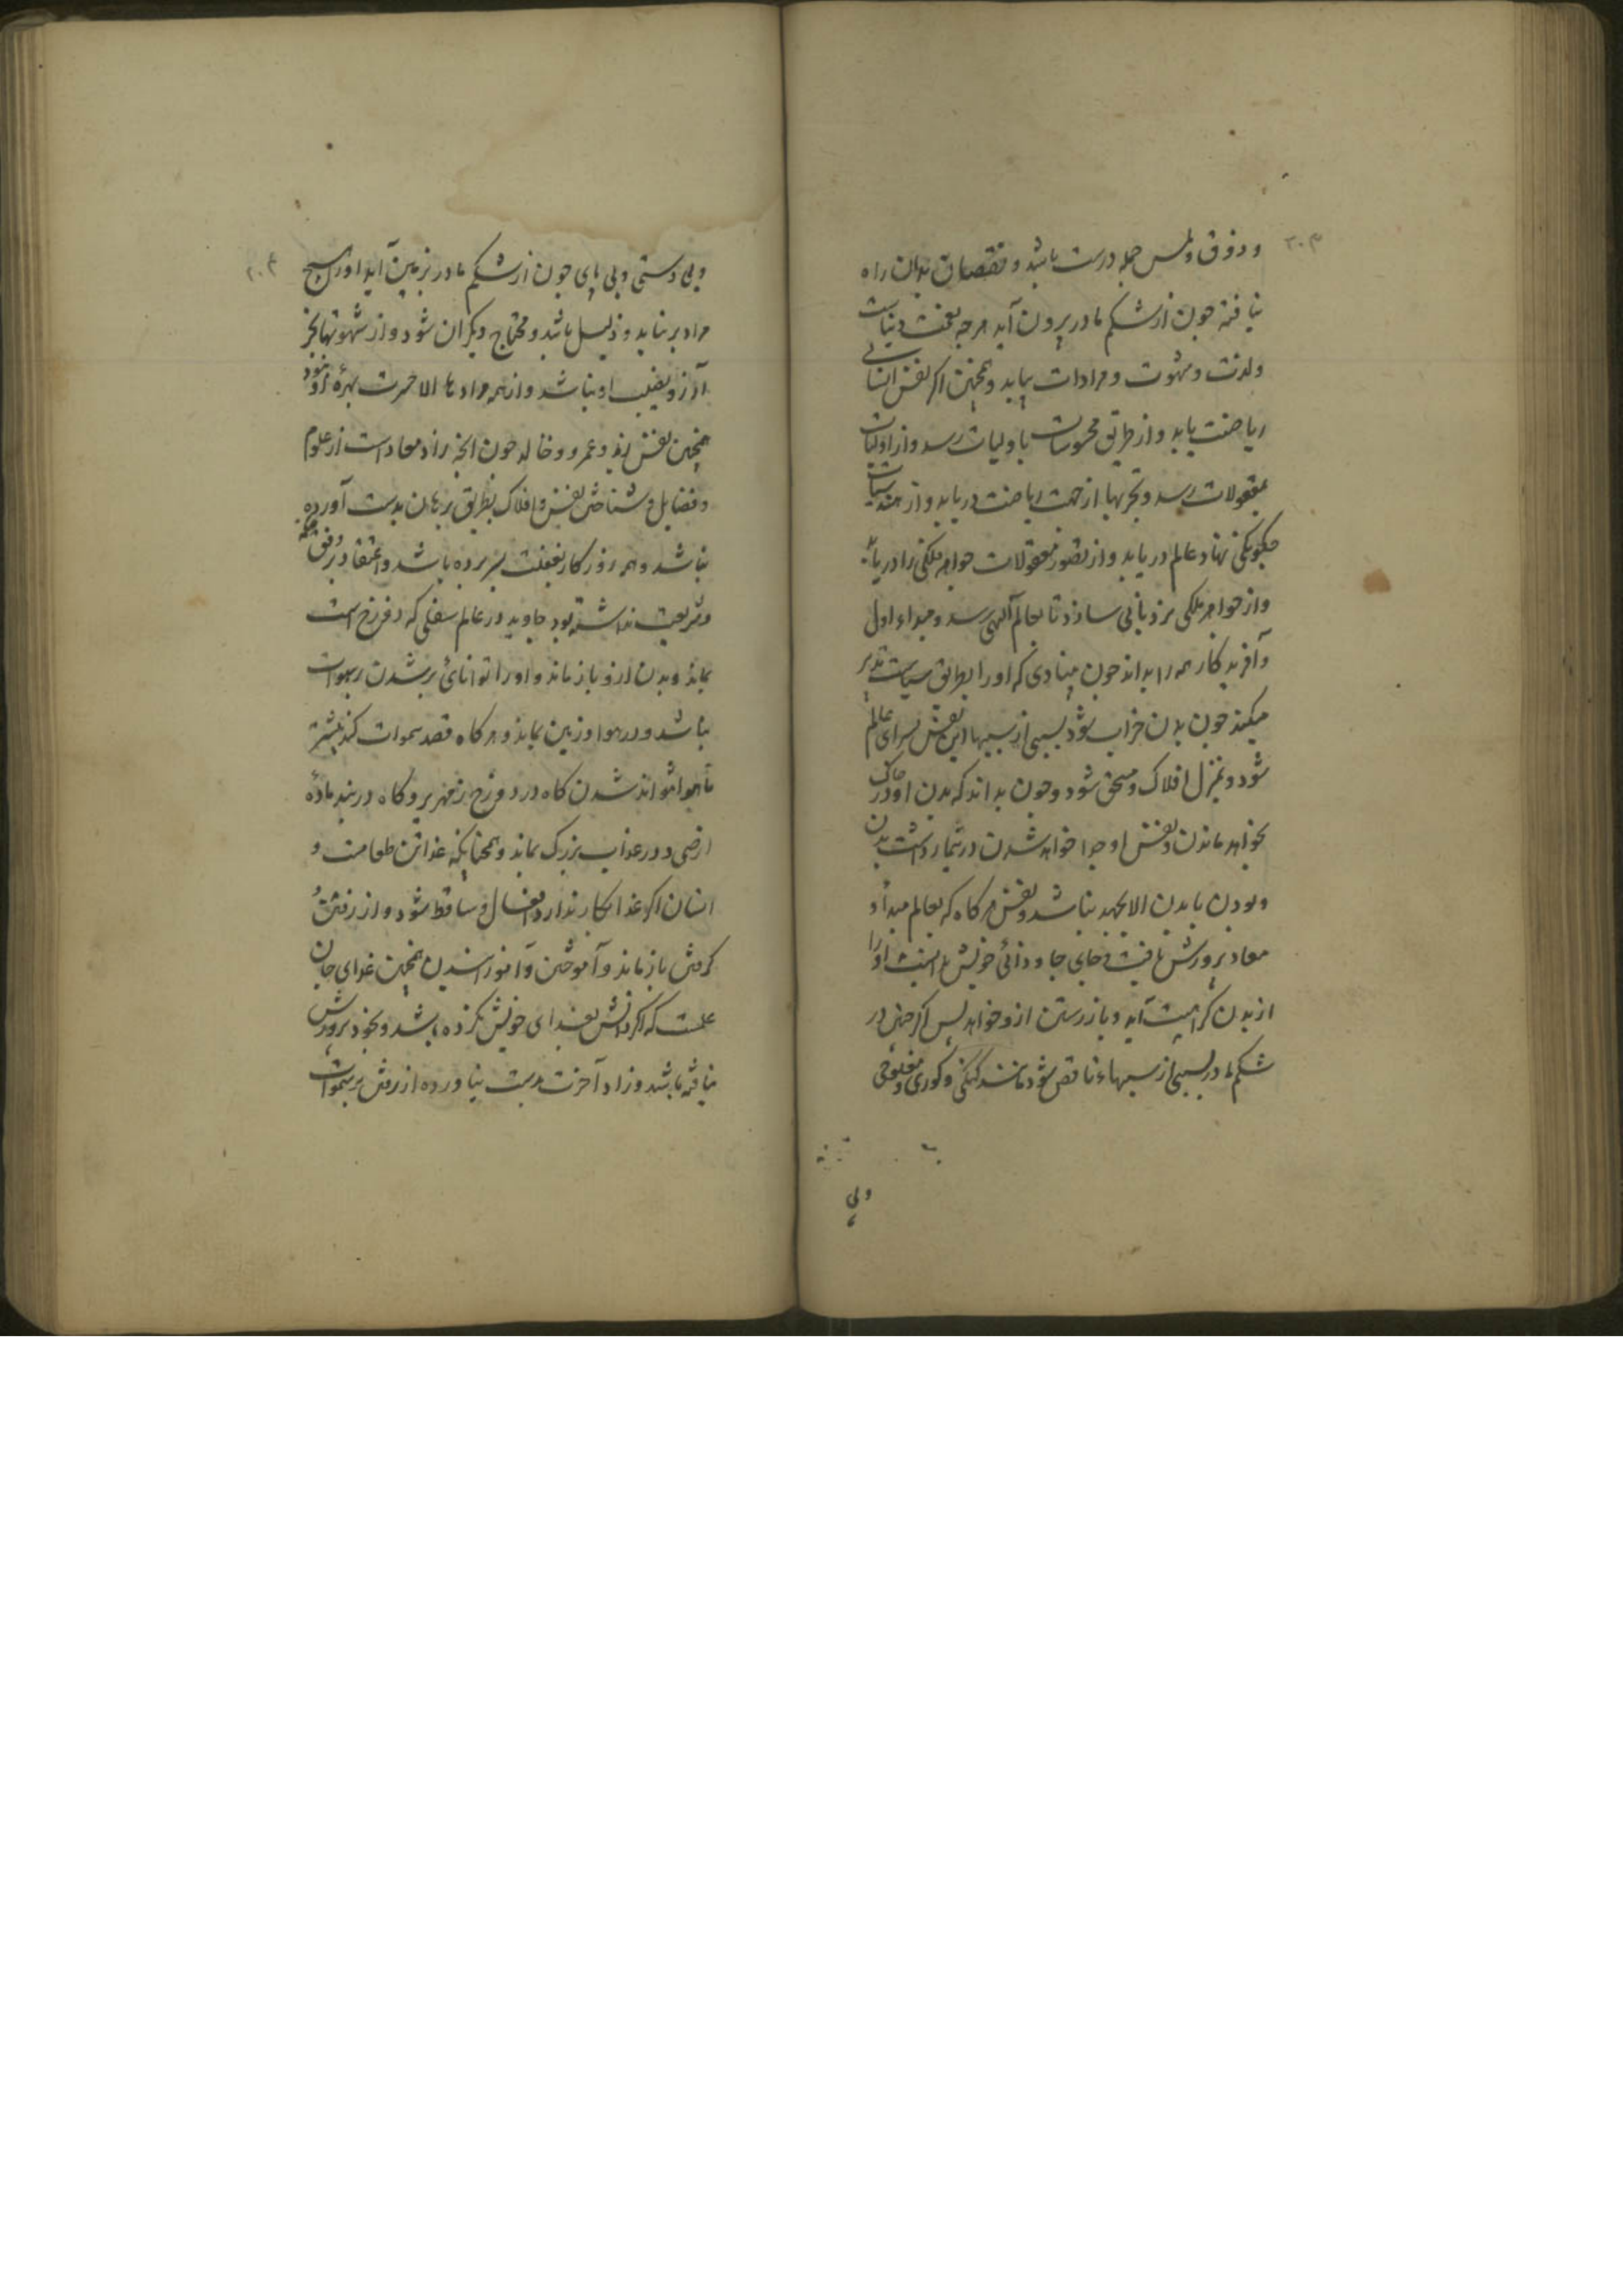 ۲۰۳
و ذوق و لمس جمله درست باشد و نقصان بدان راه
نیافته چون از شکم مادر بیرون آید هرچه نعمت دنیاست
و لذت و شهوت و مرادات بیابد و همچنین اگر نفس انسانی
ریاضت یابد و از طریق محسوسات باولیات رسد و از اولیات
بمعقولات رسد و تجربها از جهت ریاضت دریابد و از هندسیات
چگونگی نهاد عالم دریابد و از تصور معقولات جواهر ملکی را دریابد
و از جواهر ملکی نردبانی سازد تا بعالم آلهی رسد و مبداء اول
و آفریدکار همه را بداند چون بدن خراب شود بسببی از سببها این نفس بسرای عالم
شود و بمنزل افلاک مستحق شود و چون بداند که بدن او در خاک
بخواهد ماندن و نفس او جدا خواهد شدن در تیمار داشت بدن
و بودن با بدن الا بجهد نباشد و نفس هرکاه که بعالم مبدأ و
معاد پرورش یافت و جای جاودانی خویش بدانست او را
از بدن کراهیت آید و باز رستن ازو خواهد پس اکر جنین در
شکم مادر بسببی از سببهاء ناقص شود مانند کنکی و کوری و مفلوجی
ولی
۲۰۴
وبی دستی وبی پای چون از شکم مادر بزمین آید او را هیچ
مراد بر نیاید و ذلیل باشد و محتاج دیکران شود و از شهوتها بجز
آرزو نصیب او نباشد و از همه مرادها الا حسرت بهرهٔ او نبود
همچنین نفس زید و عمرو و خالد چون آنچه زاد معادست از علوم
و فضایل و شناختن نفس و افلاک بطریق برهان بدست آورده
نباشد و همه روزکار بغفلت بسر برده باشد و اعتقاد بر وفق
و شریعت نداشته بود جاوید در عالم سفلی که دوزخ است
بماند و بدن ازو باز ماند و او را توانائ بر شدن بر سموات
نباشد و در هوا و زمین بماند و هرکاه قصد سموات کند بیشتر
تا هوا نتواند شدن کاه در دوزخ زمهریر و کاه در بند مادهٔ
ارضی و در عذاب بزرک بماند و همچنانکه غذا تن طعامست و
انسان اکر غذا بکار ندارد افعال او ساقط شود و از رفتن و
کردش باز ماند و آموختن و آموزانیدن همچنین غذای جان
علمست که اکر دانش بغذای خویش نکرده باشد و بخود پرورش
نیافته باشد و زاد آخرت بدست نیاورده از رفتن بر سموات